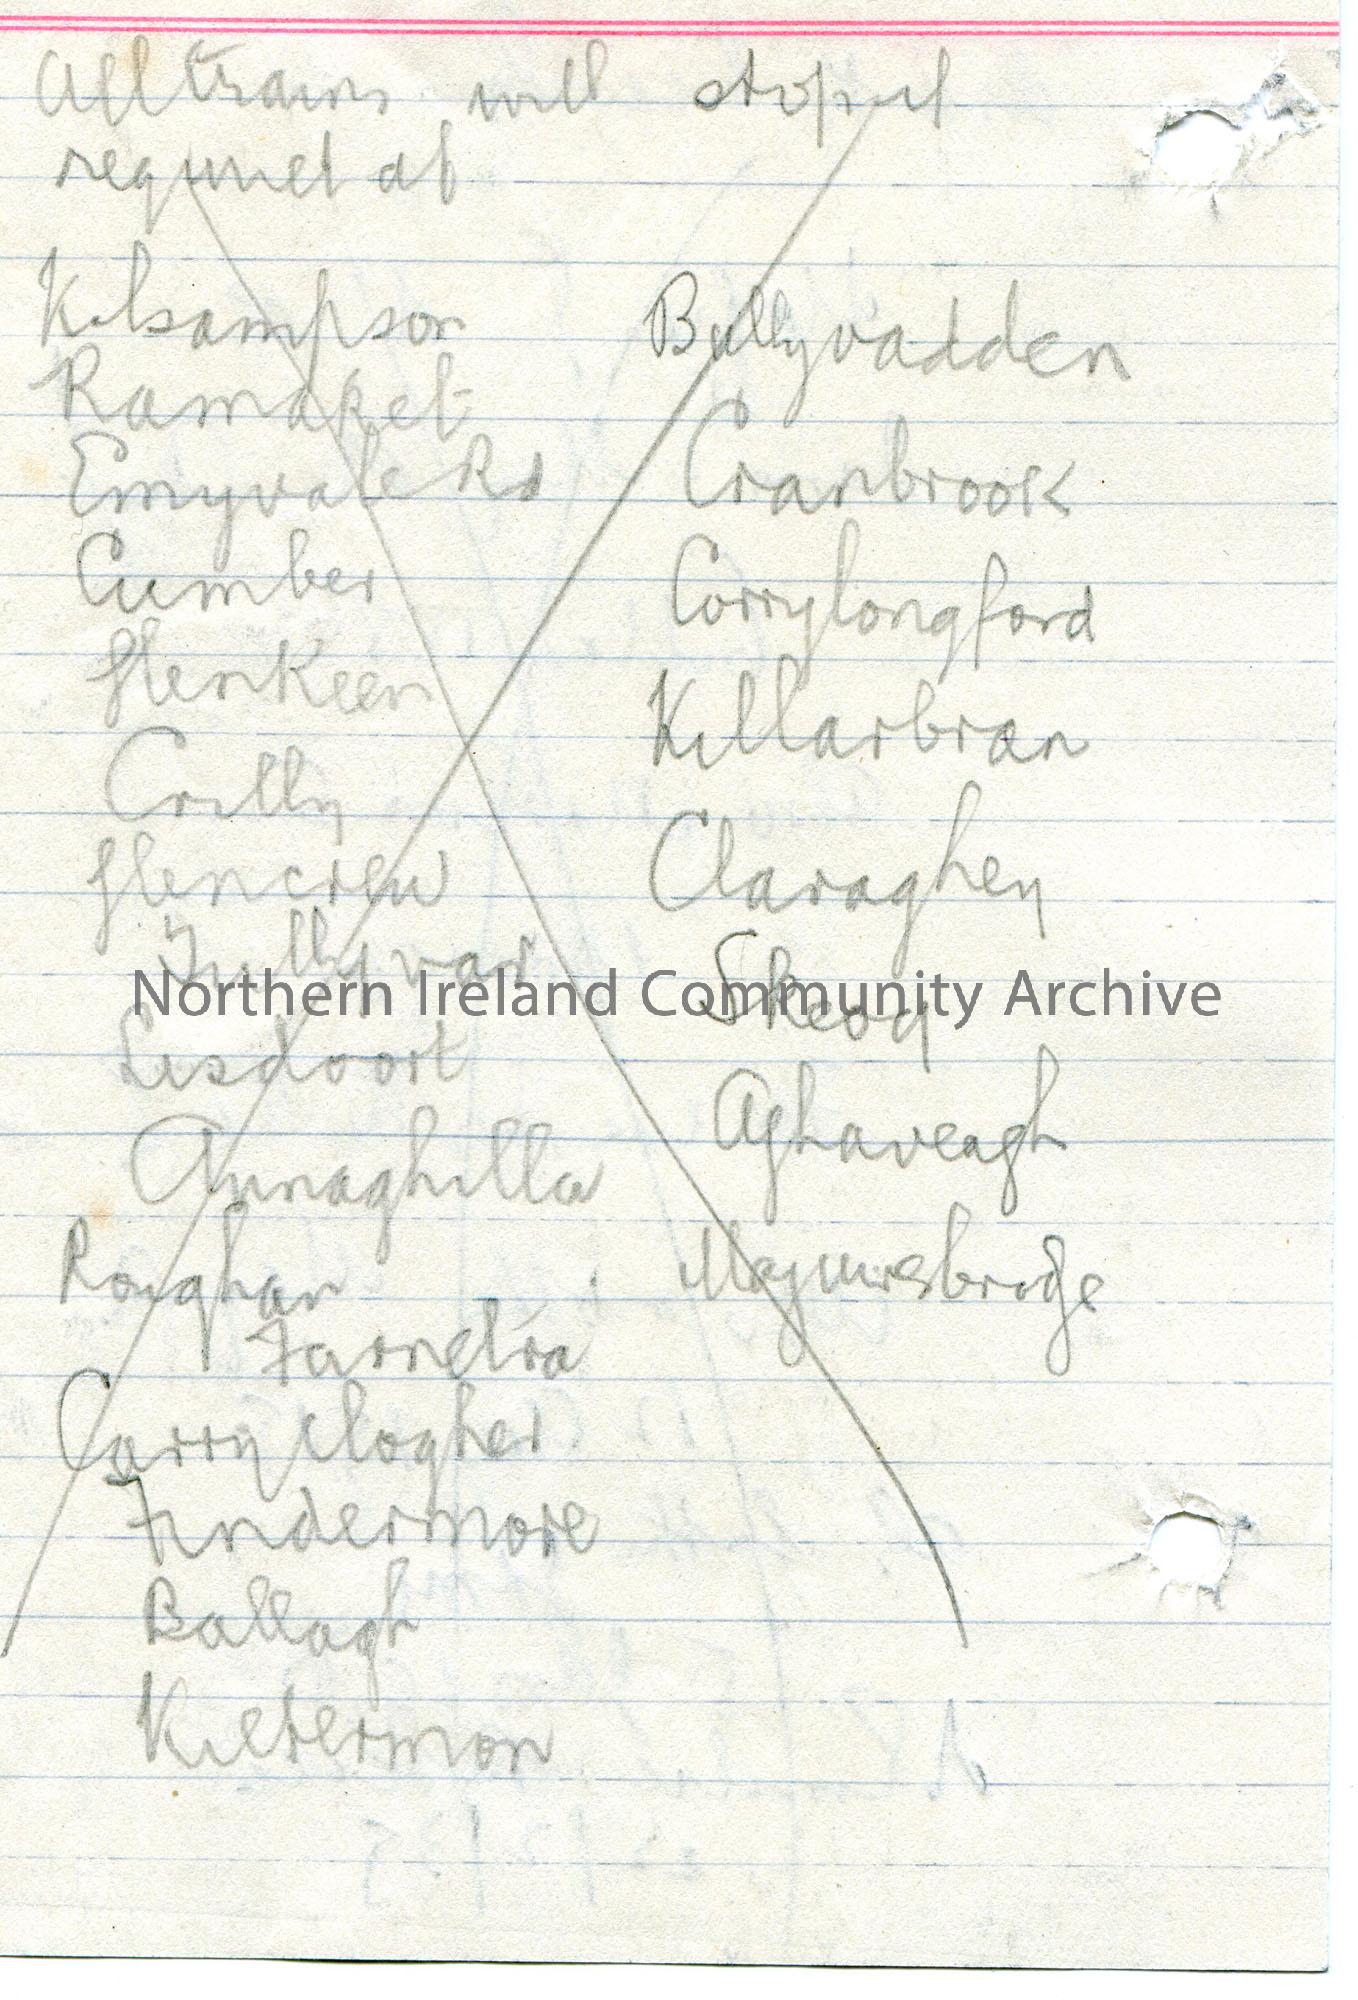 All trains will stop if
required at
Kilsampson
Ramaket
Emyvale Rd
Cumber
Glenkeen
Crilly
Glencrew
Tullyvar
Lisdoort
Annaghilla
Roughan
Farnetra
Carryclogher
Findermore
Ballagh
Kiltermon
Ballyvadden
Cranbrook
Corrylongford
Killarbran
Claraghey
Skeog
Aghaveagh
Maguiresbridge
Northern Ireland Community Archive